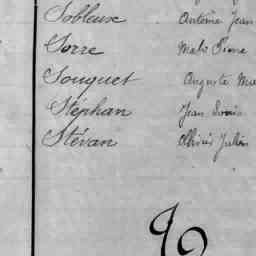 Sobleuse Antoine Jean
Sorre Pierre
Souquet Auguste Ma
Stéphan Jean Louis
Stévan Olivier Julien